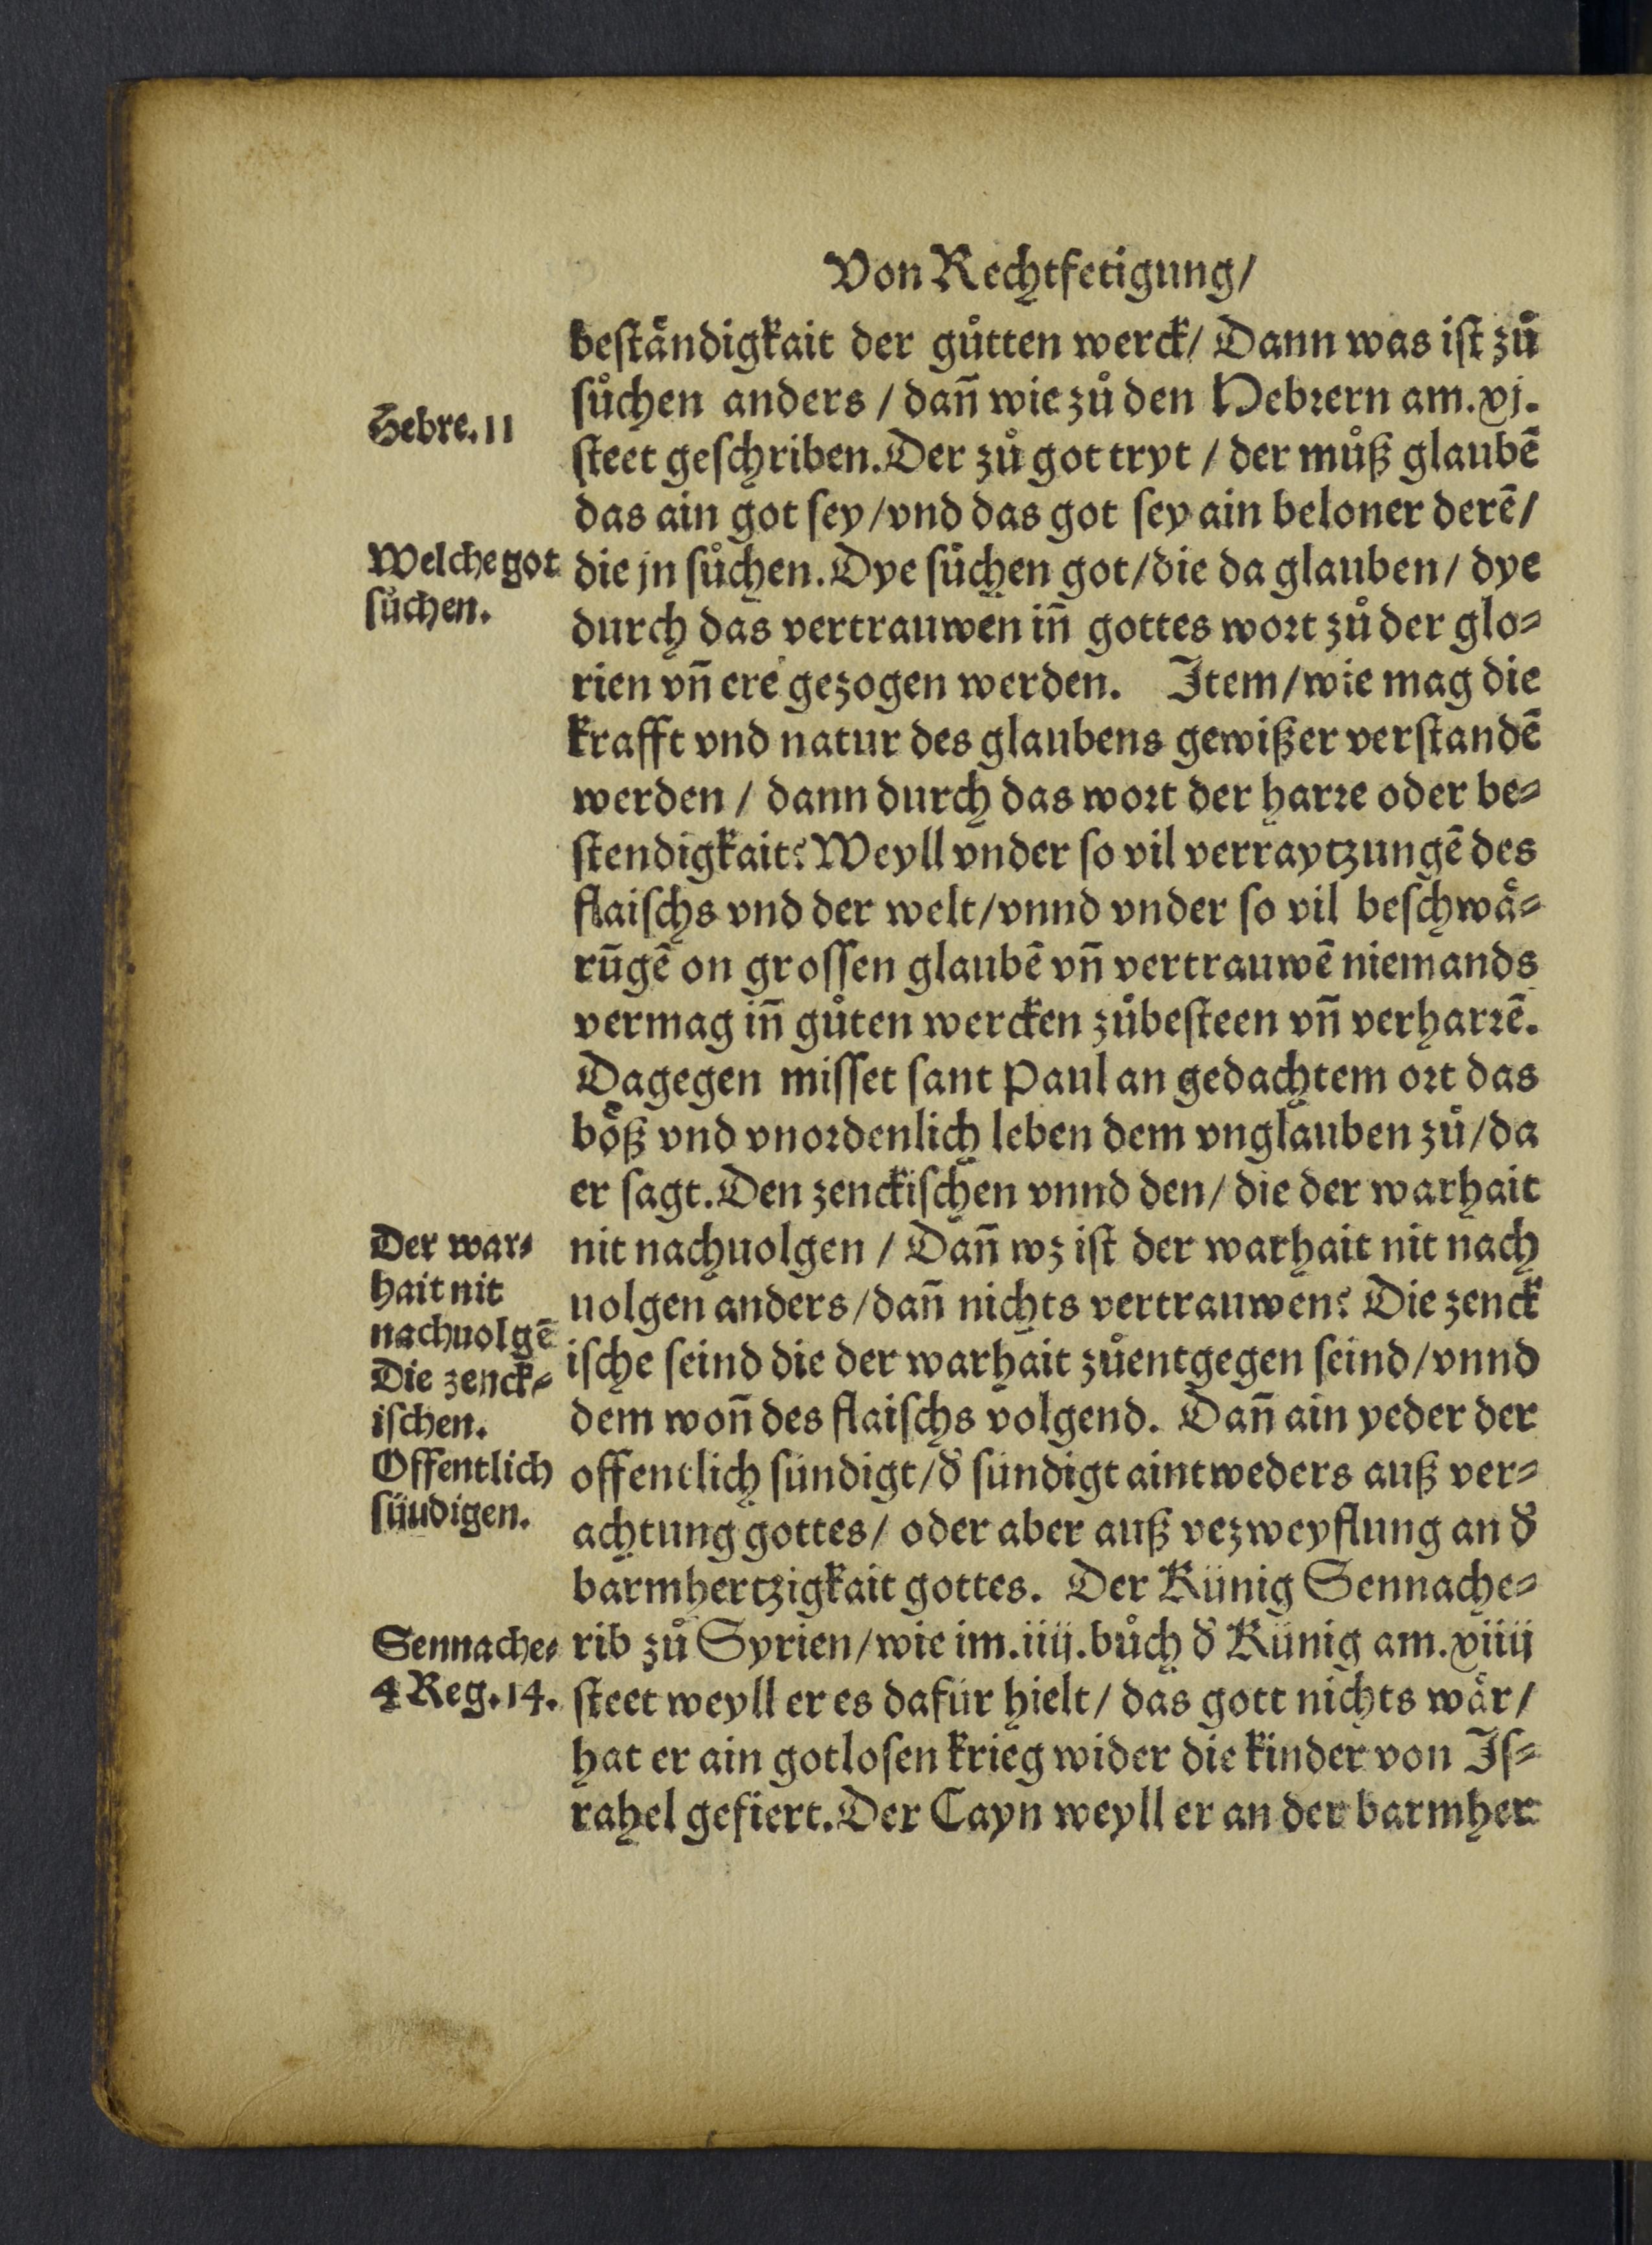 Von Rechtfetigung/
beſtaͤndigkait der guͦtten werck/ Dann was iſt zuͦ
ſuͦchen anders / dañ wie zuͦ den Hebꝛern am.xj.
Hebre.11
ſteet geſchriben. Der zuͦ got tryt / der muͦß glaubē
das ain got ſey/vnd das got ſey ain beloner derē/
Welche got
ſuͦchen.
die jn ſuͦchen. Dye ſuͦchen got/die da glauben/ dye
durch das vertrauwen iñ gottes woꝛt zuͦ der glo⸗
rien vñ ere gezogen werden. Item/wie mag die
krafft vnd natur des glaubens gewißer verſtandē
werden / dann durch das woꝛt der harꝛe oder be⸗
ſtendigkait? Weyll vnder ſo vil verraytzungē des
flaiſchs vnd der welt/vnnd vnder ſo vil beſchwaͤ⸗
rūgē on groſſen glaubē vñ vertrauwē niemands
vermag iñ guͦten wercken zuͦbeſteen vñ verharꝛē.
Dagegen miſſet ſant Paul an gedachtem oꝛt das
boͤß vnd vnoꝛdenlich leben dem vnglauben zuͦ/da
er ſagt. Den zenckiſchen vnnd den/ die der warhait
Der war⸗
hait nit
nachuolgē
nit nachuolgen / Dañ wz iſt der warhait nit nach
uolgen anders/dañ nichts vertrauwen? Die zenck
Die zenck⸗
iſchen.
iſche ſeind die der warhait zuͦentgegen ſeind/vnnd
dem woñ des flaiſchs volgend. Dañ ain yeder der
Offentlich
ſüudigen.
offentlich ſündigt/ð ſündigt aintweders auß ver⸗
achtung gottes/ oder aber auß vezweyflung an ð
barmhertzigkait gottes. Der Künig Sennache⸗
Sennache⸗
4 Reg.14.
rib zuͦ Syrien/wie im.iiij.buͦch ð Künig am.xiiij
ſteet weyll er es dafür hielt/ das gott nichts waͤr/
hat er ain gotloſen krieg wider die kinder von Iſ⸗
rahel gefiert. Der Cayn weyll er an der barmher